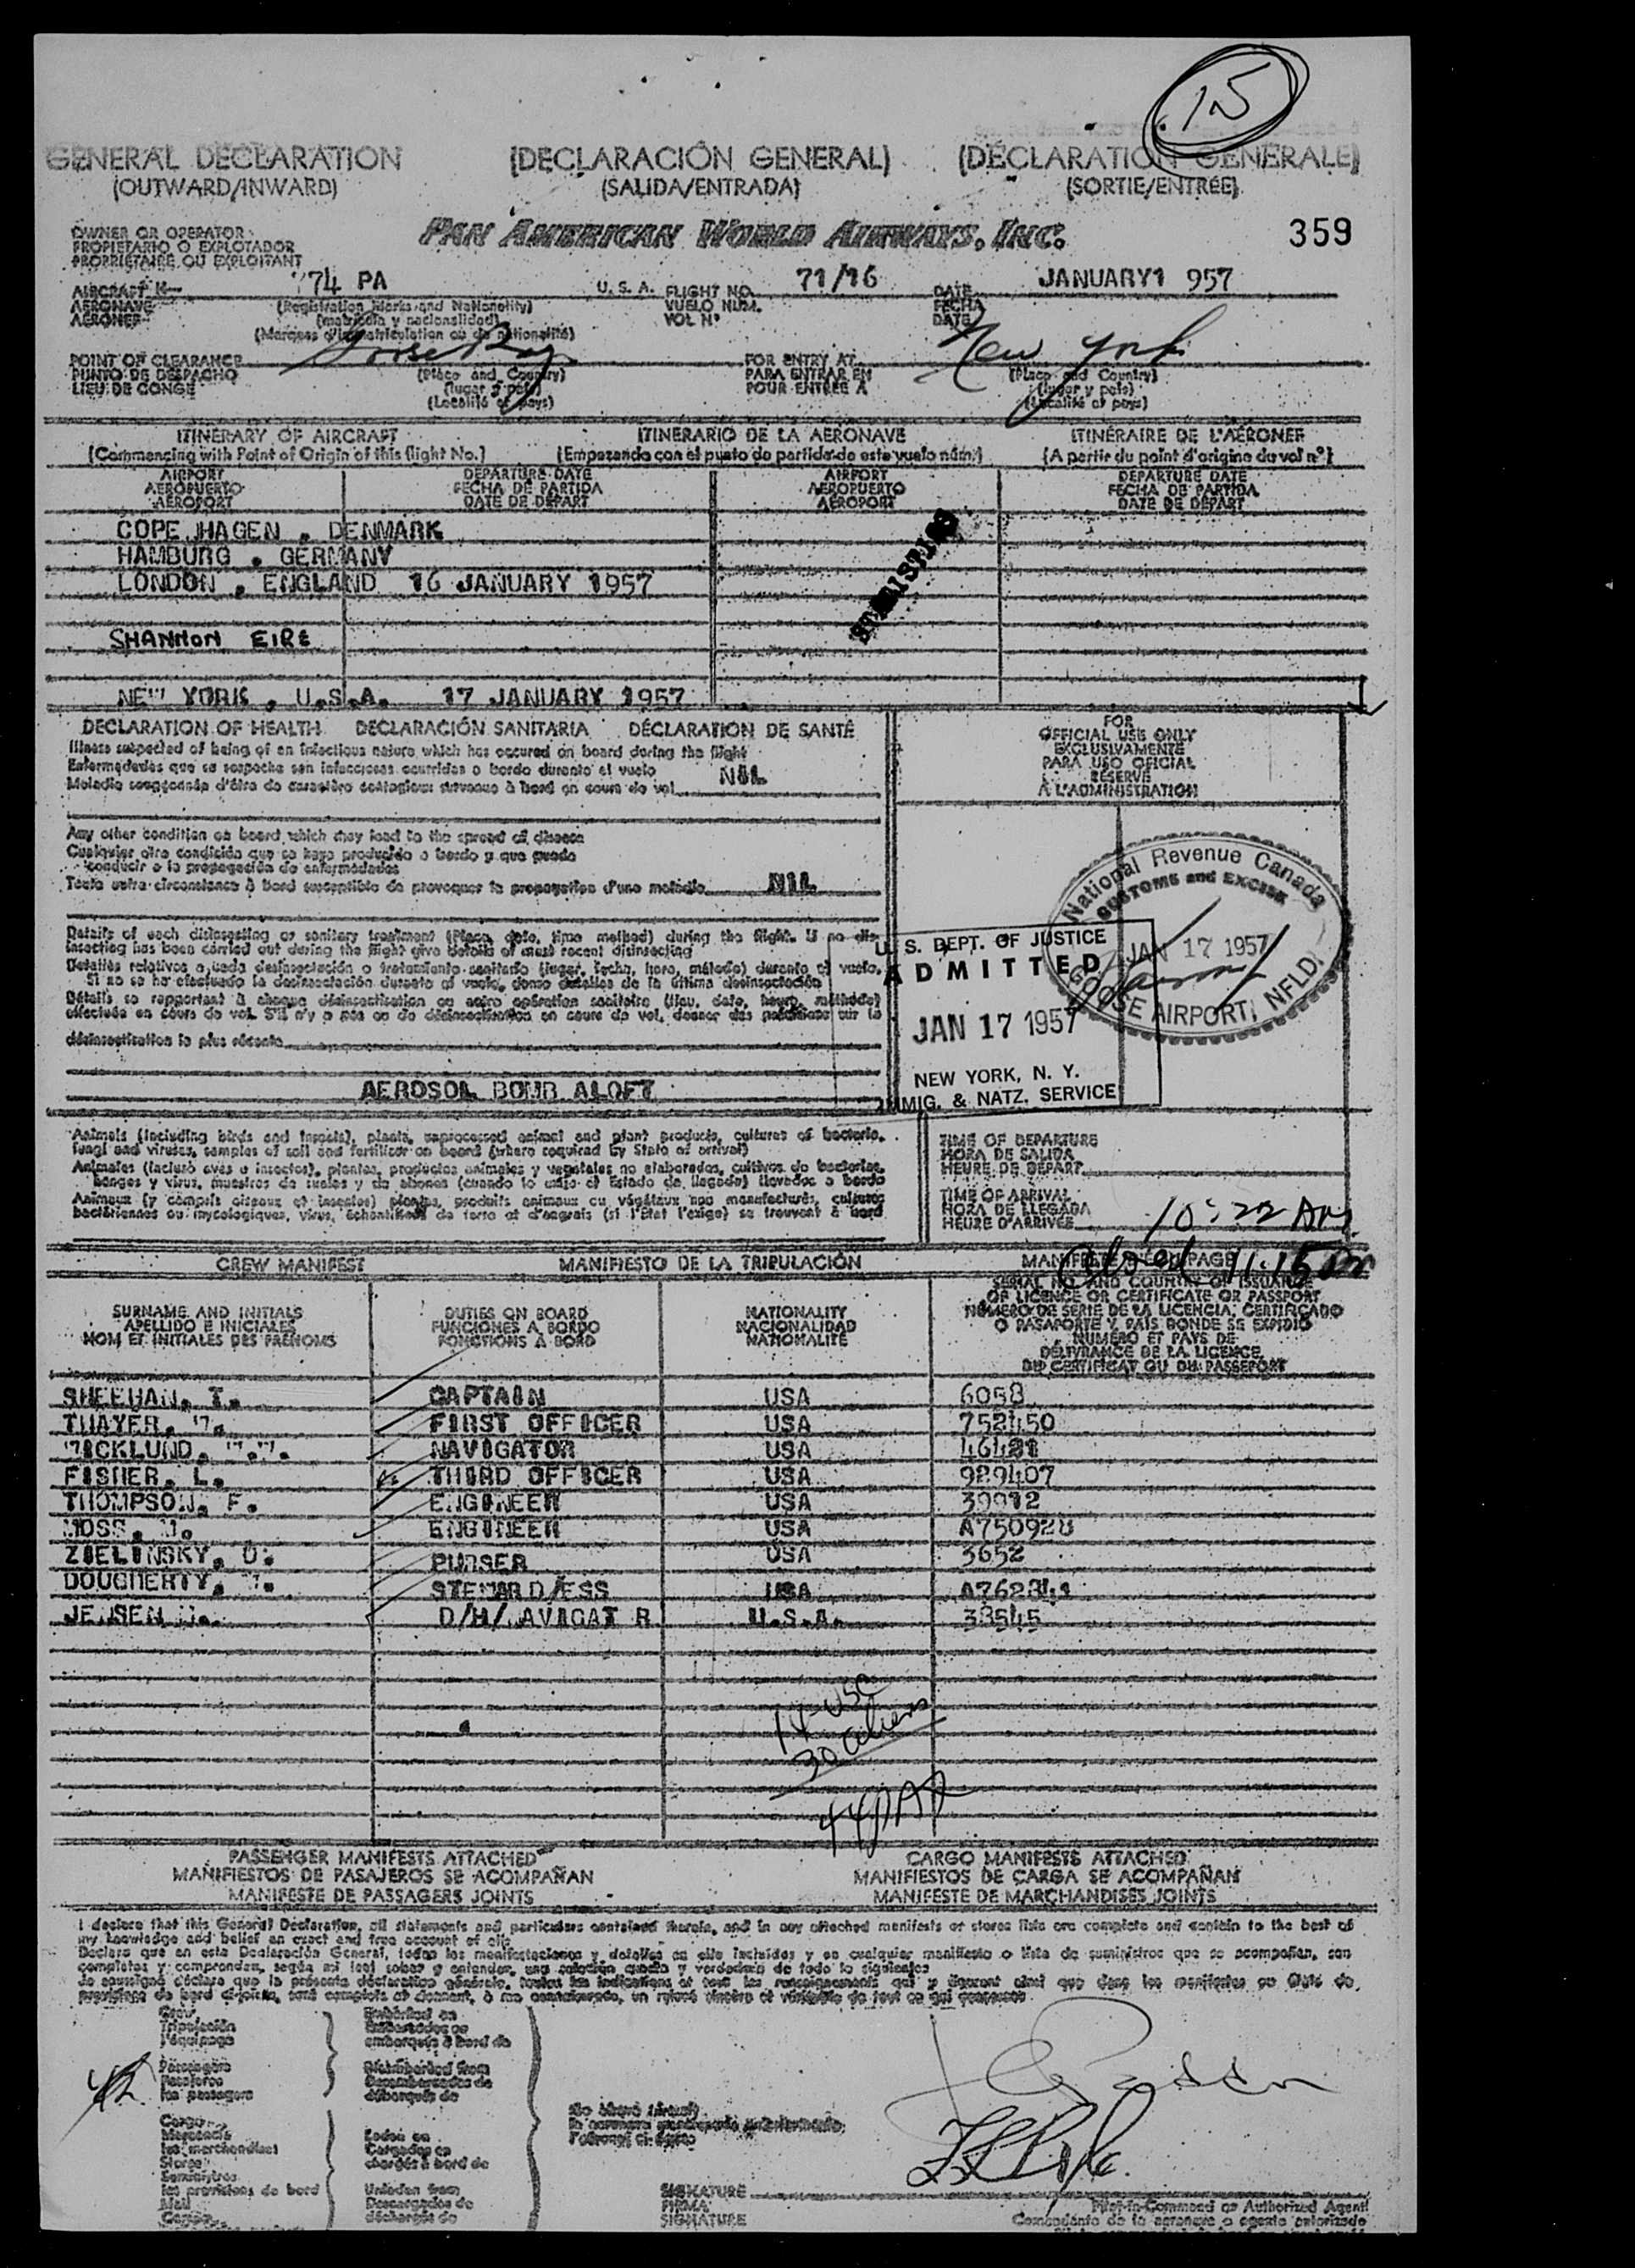 15
GENERAL DECLARATION (DECLARACIÓN GENERAL) (DÉCLARATION GÉNÉRALE)
(OUTWARD/INWARD) (SALIDA/ENTRADA) (SORTIE/ENTRÉE)
OWNER OR OPERATOR
PROPIETARIO O EXPLOTADOR
PROPRIÉTAIRE OU EXPLOITANT
PAN AMERICAN WORLD AIRWAYS, INC.
359
AIRCRAFT N— 74 PA U. S. A. FLIGHT NO. 71/16 DATE JANUARY1 957
AERONAVE (Registration Marks and Nationality) VUELO NUM. FECHA
AÉRONEF (matrícula y nacionalidad) VOL Nº DATE
(Marques d'immatriculation ou de nationalité)
POINT OF CLEARANCE Goose Bay FOR ENTRY AT New York
PUNTO DE DESPACHO (Place and Country) PARA ENTRAR EN (Place and Country)
LIEU DE CONGE (lugar y país) POUR ENTRÉE A (lugar y país)
(Localité et pays) (Localité et pays)
ITINERARY OF AIRCRAFT ITINERARIO DE LA AERONAVE ITINÉRAIRE DE L'AÉRONEF
(Commencing with Point of Origin of this flight No.) (Empezando con el punto de partida de este vuelo núm.) (A partir du point d'origine du vol nº)
AIRPORT DEPARTURE DATE AIRPORT DEPARTURE DATE
AEROPUERTO FECHA DE PARTIDA AEROPUERTO FECHA DE PARTIDA
AÉROPORT DATE DE DÉPART AÉROPORT DATE DE DÉPART
COPE HAGEN , DENMARK
HAMBURG , GERMANY
LONDON , ENGLAND 16 JANUARY 1957
SHANNON EIRE
NEW YORK , U.S.A. 17 JANUARY 1957
DECLARATION OF HEALTH DECLARACIÓN SANITARIA DÉCLARATION DE SANTÉ
Illness suspected of being of an infectious nature which has occured on board during the flight
Enfermedades que se sospecha son infecciosas ocurridas a bordo durante el vuelo NIL
Maladie soupçonnée d'être de caractère contagieux survenue à bord en cours de vol
Any other condition on board which may lead to the spread of disease
Cualquier otra condición que se haya producido a bordo y que pueda
conducir a la propagación de enfermedades
Toute autre circonstance à bord susceptible de provoquer la propagation d'une maladie NIL
Details of each disinsecting or sanitary treatment (Place, date, time method) during the flight. If no dis-
insecting has been carried out during the flight give details of most recent disinsecting
Detalles relativos a cada desinsectación o tratamiento sanitario (lugar, fecha, hora, método) durante el vuelo.
Si no se ha efectuado la desinsectación durante el vuelo, dense detalles de la última desinsectación
Détails se rapportant à chaque désinsectisation ou autre opération sanitaire (lieu, date, heure, méthode)
effectuée en cours de vol. S'il n'y a pas eu de désinsectisation en cours de vol, donner des précisions sur la
désinsectisation la plus récente
AEROSOL BOMB ALOFT
FOR
OFFICIAL USE ONLY
EXCLUSIVAMENTE
PARA USO OFICIAL
RÉSERVÉ
À L'ADMINISTRATION
National Revenue Canada
CUSTOMS and EXCISE
JAN 17 1957
GOOSE AIRPORT, NFLD.
U. S. DEPT. OF JUSTICE
ADMITTED
JAN 17 1957
NEW YORK, N. Y.
IMMIG. & NATZ. SERVICE
Animals (including birds and insects), plants, unprocessed animal and plant products, cultures of bacteria,
fungi and viruses, samples of soil and fertilizer on board (where required by State of arrival)
Animales (incluso aves e insectos), plantas, productos animales y vegetales no elaborados, cultivos de bacterias,
hongos y virus, muestras de suelos y de abonos (cuando lo exija el Estado de llegada) llevados a bordo
Animaux (y compris oiseaux et insectes) plantes, produits animaux ou végétaux non manufacturés, cultures
bactériennes ou mycologiques, virus, échantillons de terre et d'engrais (si l'État l'exige) se trouvant à bord
TIME OF DEPARTURE
HORA DE SALIDA
HEURE DE DÉPART
TIME OF ARRIVAL
HORA DE LLEGADA 10:22 AM
HEURE D'ARRIVÉE
CREW MANIFEST MANIFIESTO DE LA TRIPULACIÓN 11:15
SURNAME AND INITIALS DUTIES ON BOARD NATIONALITY SERIAL NO. AND COUNTRY OF ISSUANCE
APELLIDO E INICIALES FUNCIONES A BORDO NACIONALIDAD OF LICENCE OR CERTIFICATE OR PASSPORT
NOM ET INITIALES DES PRÉNOMS FONCTIONS À BORD NATIONALITÉ NÚMERO DE SERIE DE LA LICENCIA, CERTIFICADO
O PASAPORTE Y PAÍS DONDE SE EXPIDIÓ
NUMÉRO ET PAYS DE
DÉLIVRANCE DE LA LICENCE,
DU CERTIFICAT OU DU PASSEPORT
SHEEHAN, T. CAPTAIN USA 6058
THAYER, FIRST OFFICER USA 752450
NAVIGATOR USA
FISHER, L. THIRD OFFICER USA 929407
THOMPSON, F. ENGINEER USA
MOSS, ENGINEER USA A750928
ZIELINSKY, PURSER USA 3652
DOUGHERTY, STEWARD/ESS USA
JENSEN D/H/ AVIGAT R U.S.A. 38545
14 USC
30 aliens
44 PAX
PASSENGER MANIFESTS ATTACHED CARGO MANIFESTS ATTACHED
MANIFIESTOS DE PASAJEROS SE ACOMPAÑAN MANIFIESTOS DE CARGA SE ACOMPAÑAN
MANIFESTE DE PASSAGERS JOINTS MANIFESTE DE MARCHANDISES JOINTS
I declare that this General Declaration, all statements and particulars contained therein, and in any attached manifests or stores lists are complete and contain to the best of
my knowledge and belief an exact and true account of all
SIGNATURE
FIRMA
SIGNATURE
Pilot-in-Command or Authorized Agent
Comandante de la aeronave o agente autorizado